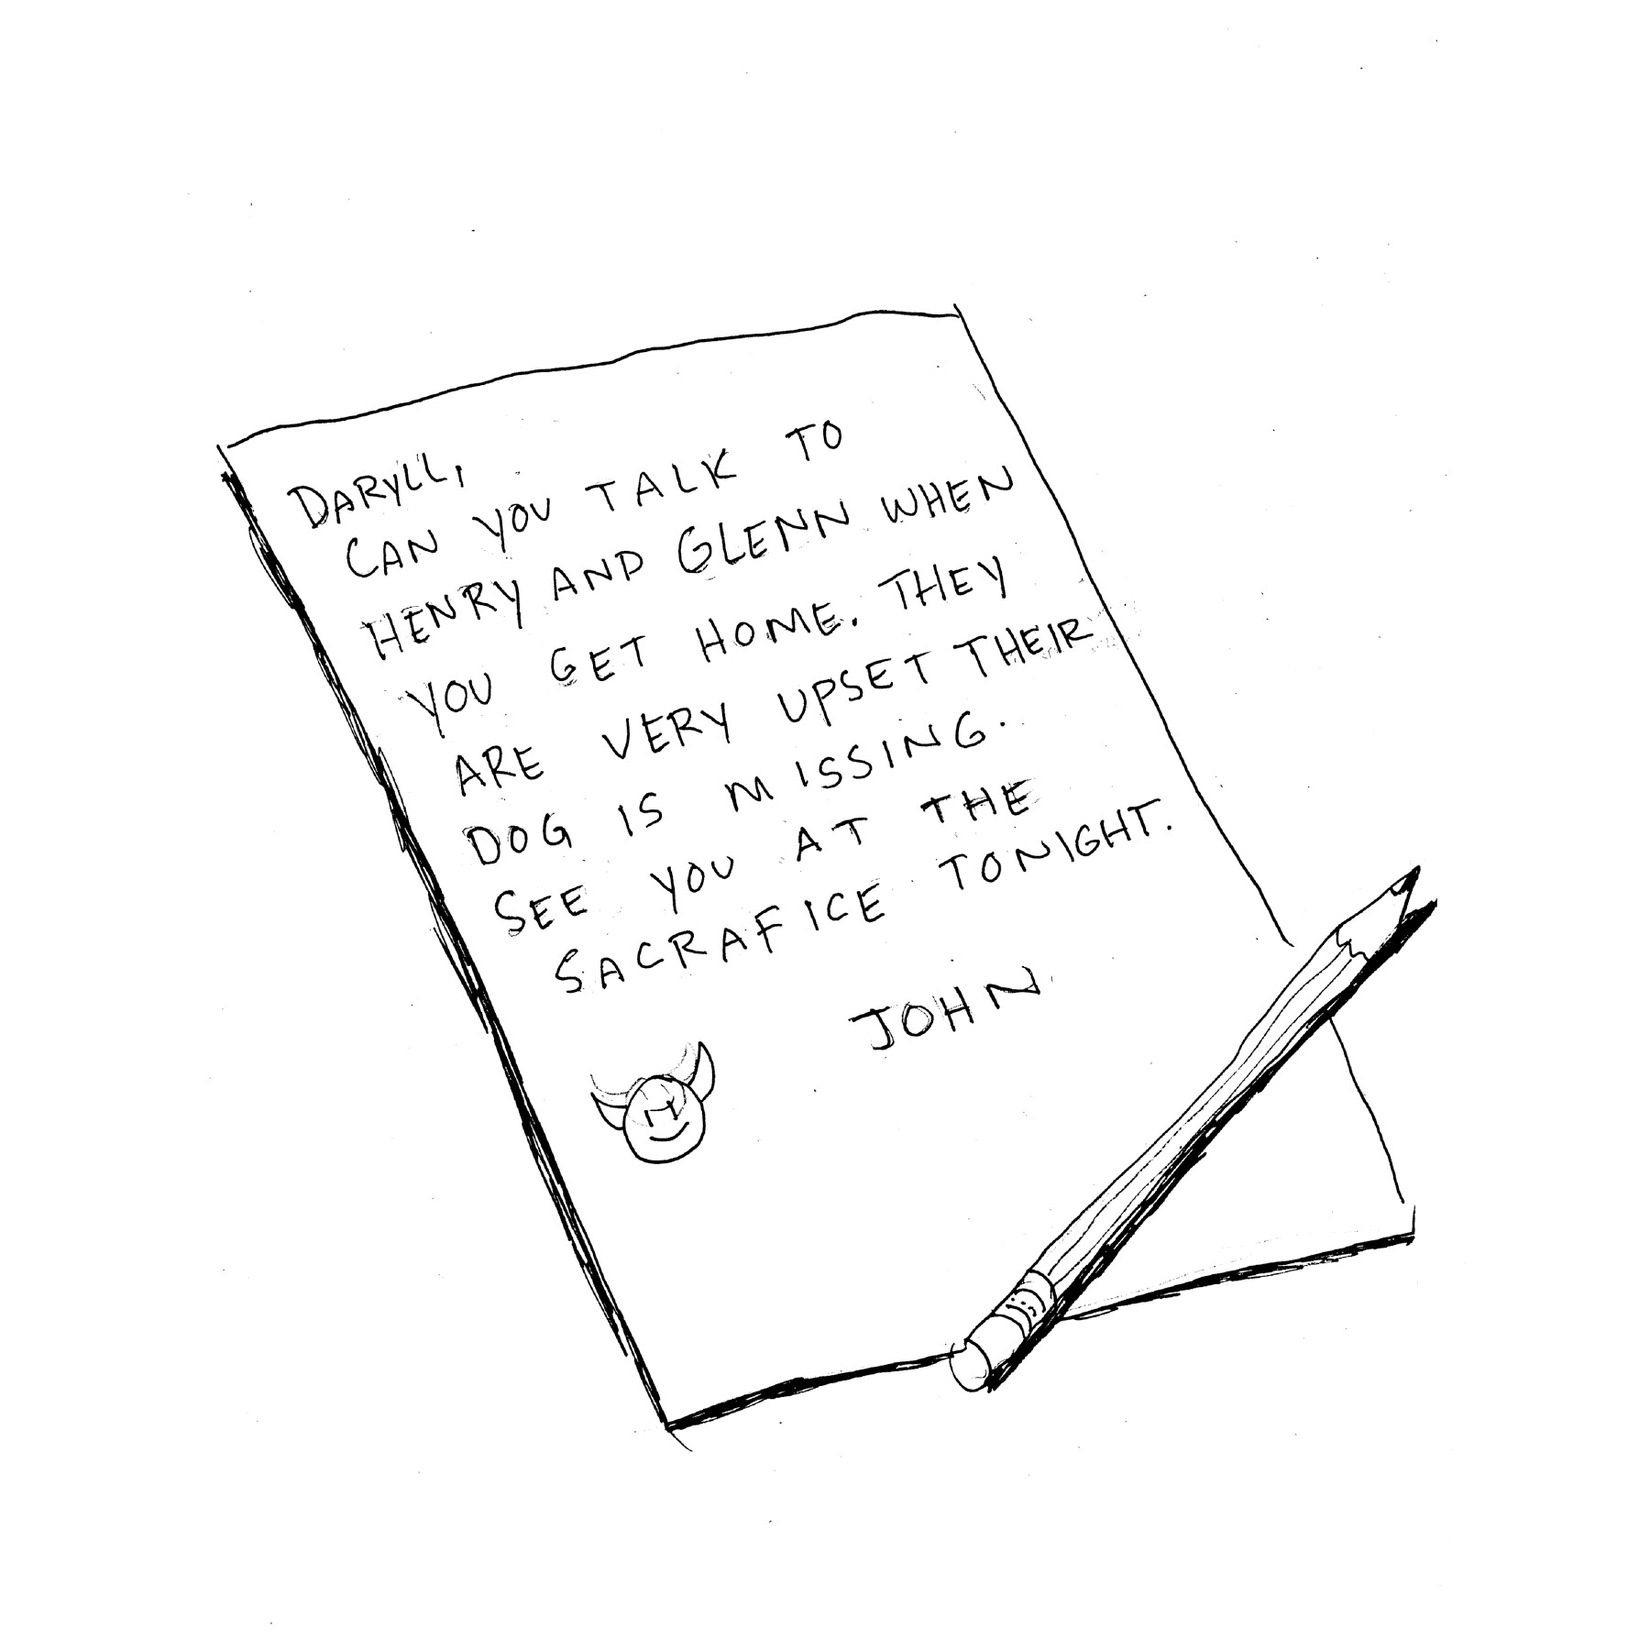 DARYLL,
CAN YOU TALK TO
HENRY AND GLENN WHEN
YOU GET HOME. THEY
ARE VERY UPSET THEIR
DOG IS MISSING.
SEE YOU AT THE
SACRAFICE TONIGHT.
JOHN